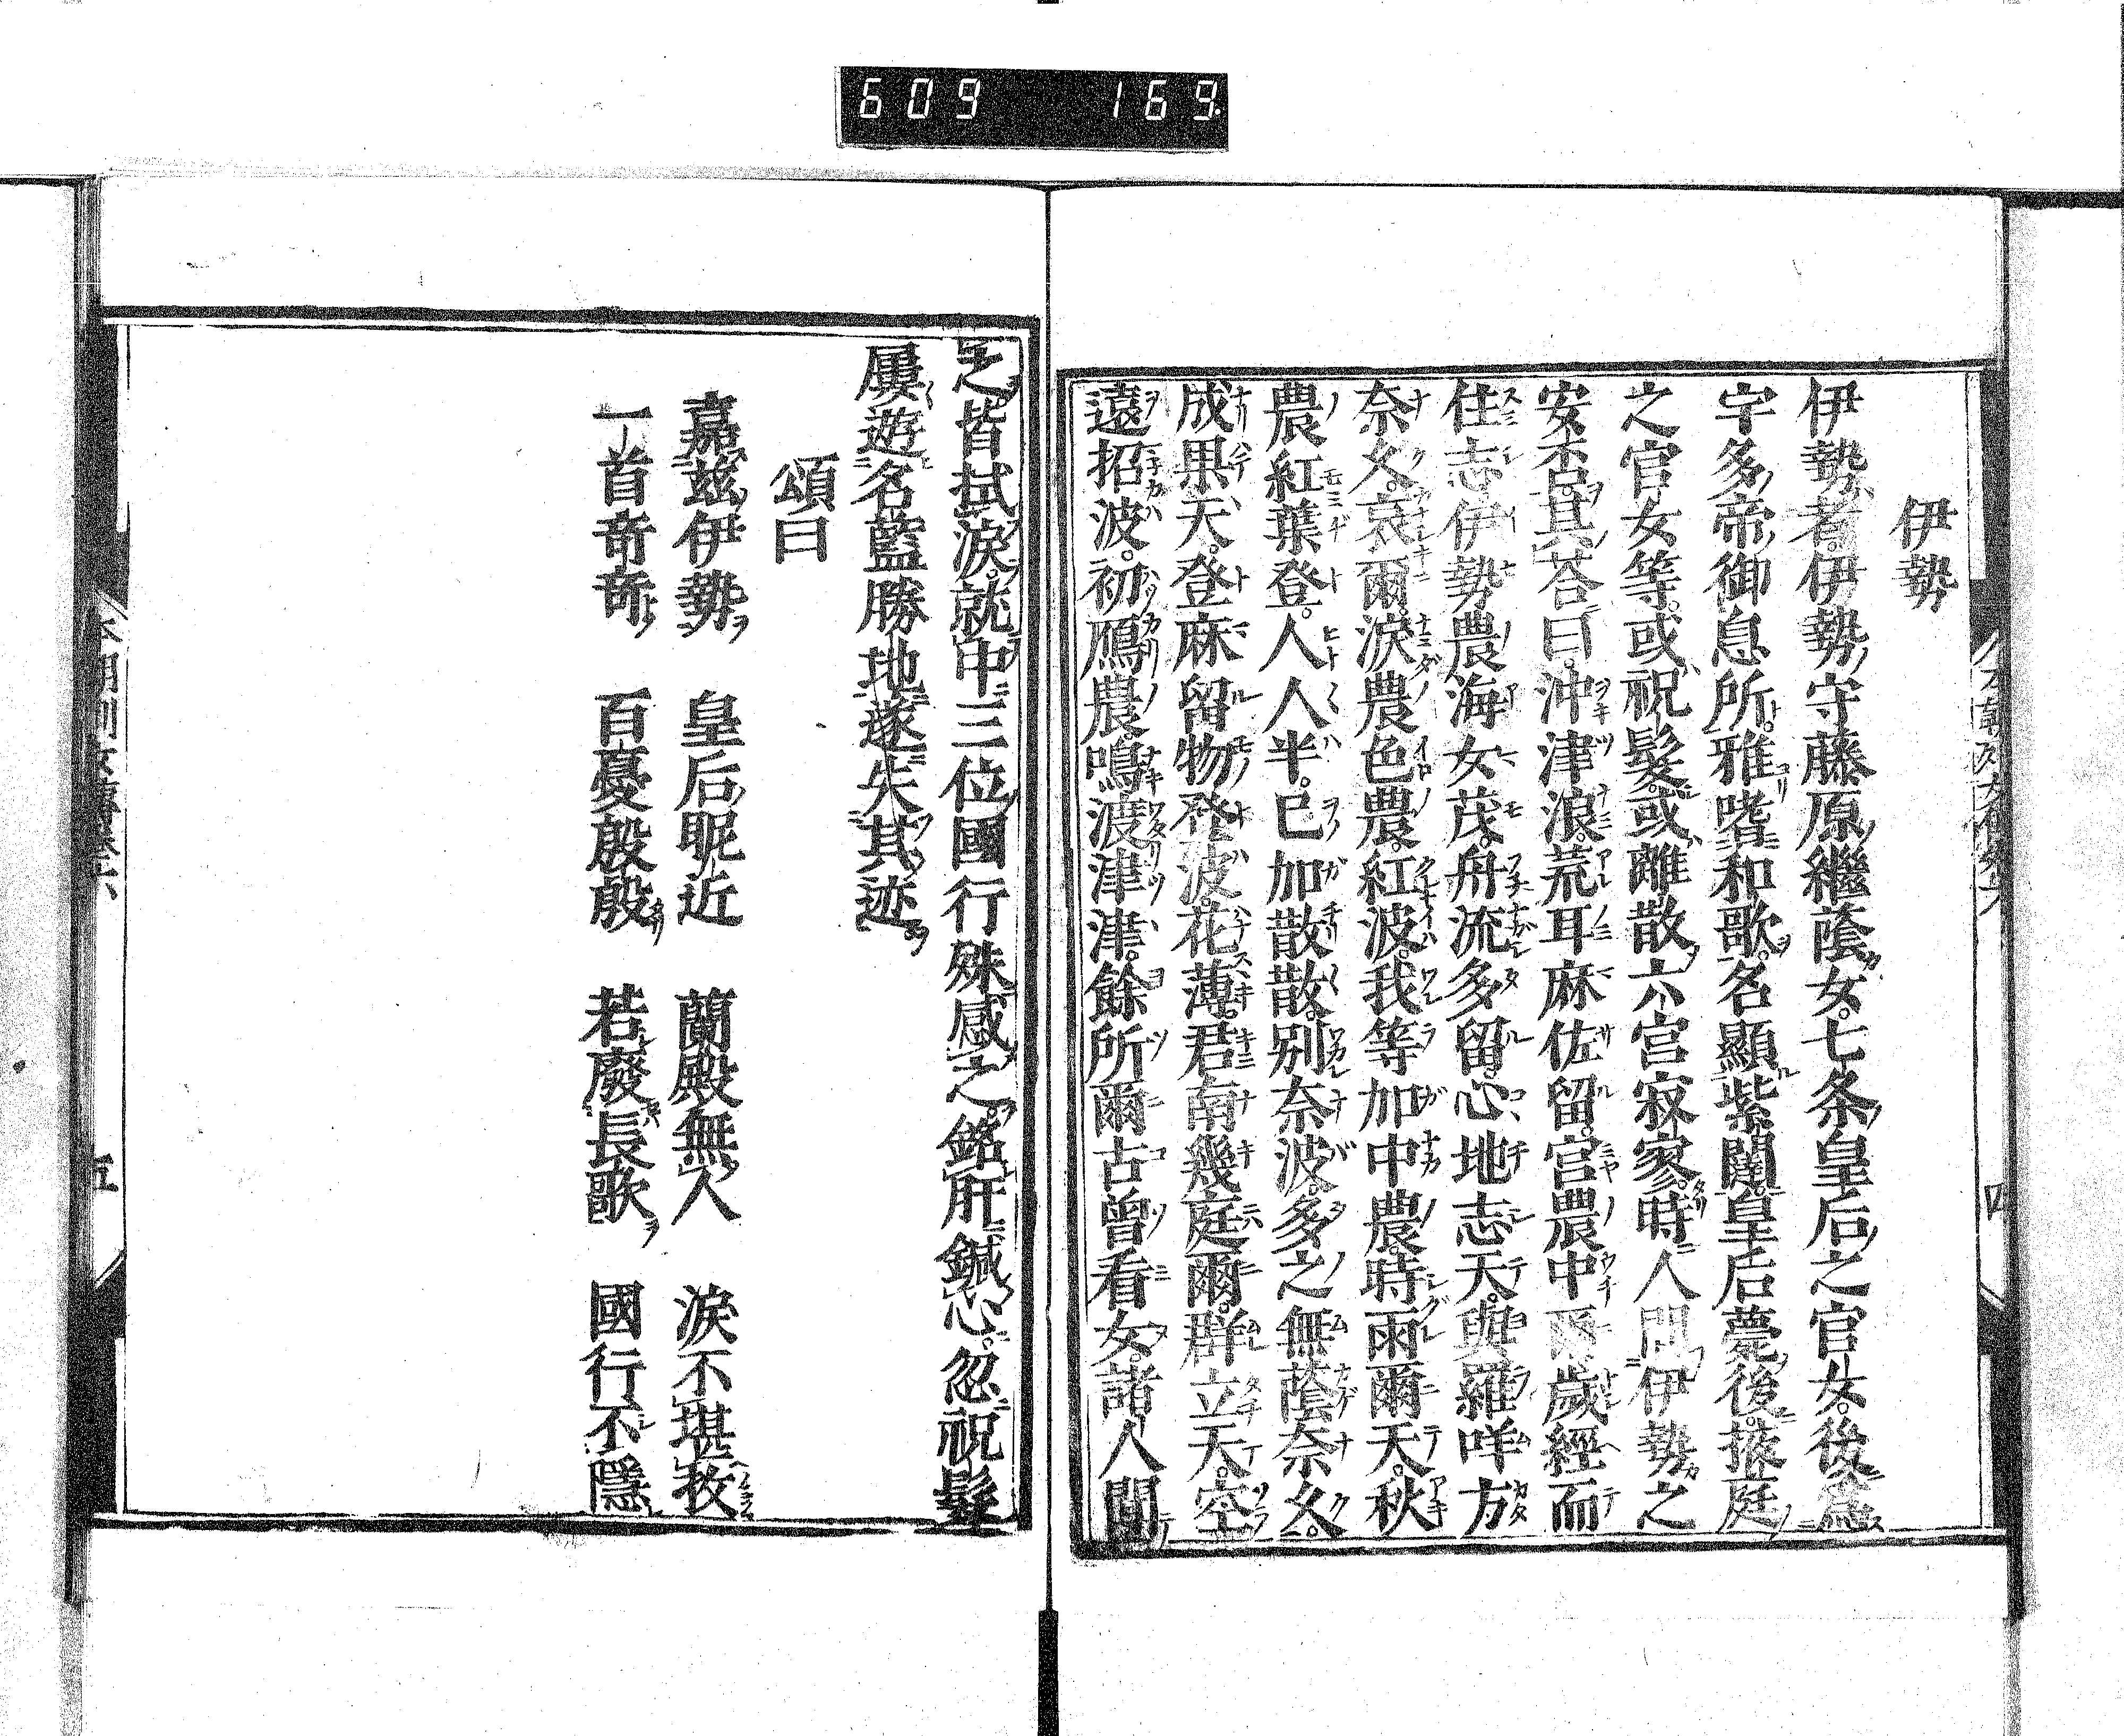 609 169
伊勢
伊勢者。伊勢守藤原繼蔭女。七条皇后之官女。後爲
宇多帝御息所。雅嗜和歌。名顯紫闥。皇后薨後。掖庭
之官女等。或祝髮。或離散六宮寂寥。時人問伊勢之
安否。其荅曰。沖津浪。荒耳麻佐留。宮農中爾歲經而
住志。伊勢農海女茂。舟流多留。心地志天。與羅咩方
奈久。哀爾。淚農色農。紅波。我等加中農。時雨爾天。秋
農紅葉登。人人半。已加散散。別奈波。多之無蔭奈久。
成果天。登麻留物登波。花薄。君南幾庭爾。群立天。空
遠招波。初鴈農。鳴渡津津。餘所爾古曾看女。諸人聞
之。皆拭淚。就中三位國行殊感之。銘肝鍼心。忽祝髮
屢遊名藍勝地遂失其迹
頌曰
嘉茲伊勢 皇后昵近 蘭殿無人 淚不堪抆
一首奇奇 百憂慇慇 若廢長歌 國行不隱
本朝列女傳卷六 四
本朝列女傳卷六 五